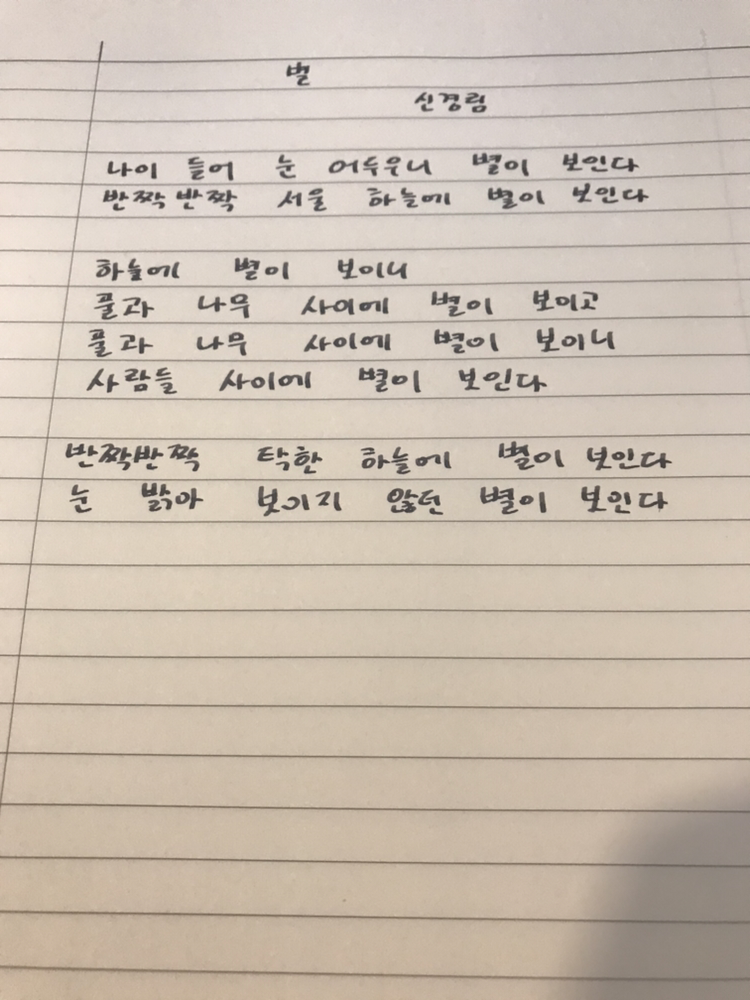 별
신경림
나이 들어 눈 어두우니 별이 보인다
반짝반짝 서울 하늘에 별이 보인다
하늘에 별이 보이니
풀과 나무 사이에 별이 보이고
풀과 나무 사이에 별이 보이니
사람들 사이에 별이 보인다
반짝반짝 탁한 하늘에 별이 보인다
눈 밝아 보이지 않던 별이 보인다